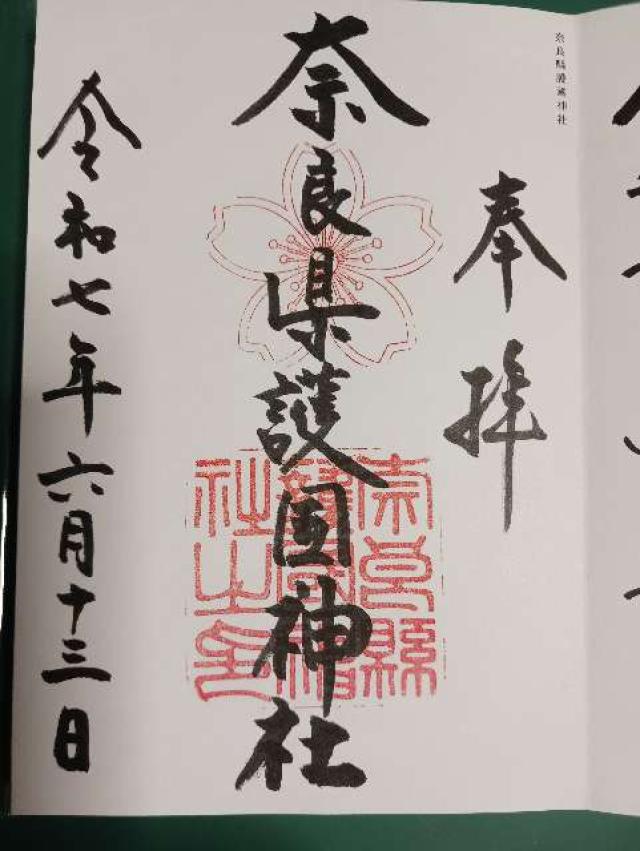 奈良縣護國神社
奉拝
奈良県護国神社
奈良縣
護國神
社之印
令和七年六月十三日